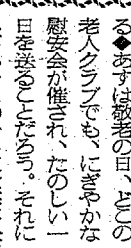 る◆あすは敬老の日、どこの
老人クラブでも、にぎやかな
慰安会が催され、たのしい一
日を送ることだろう。それに